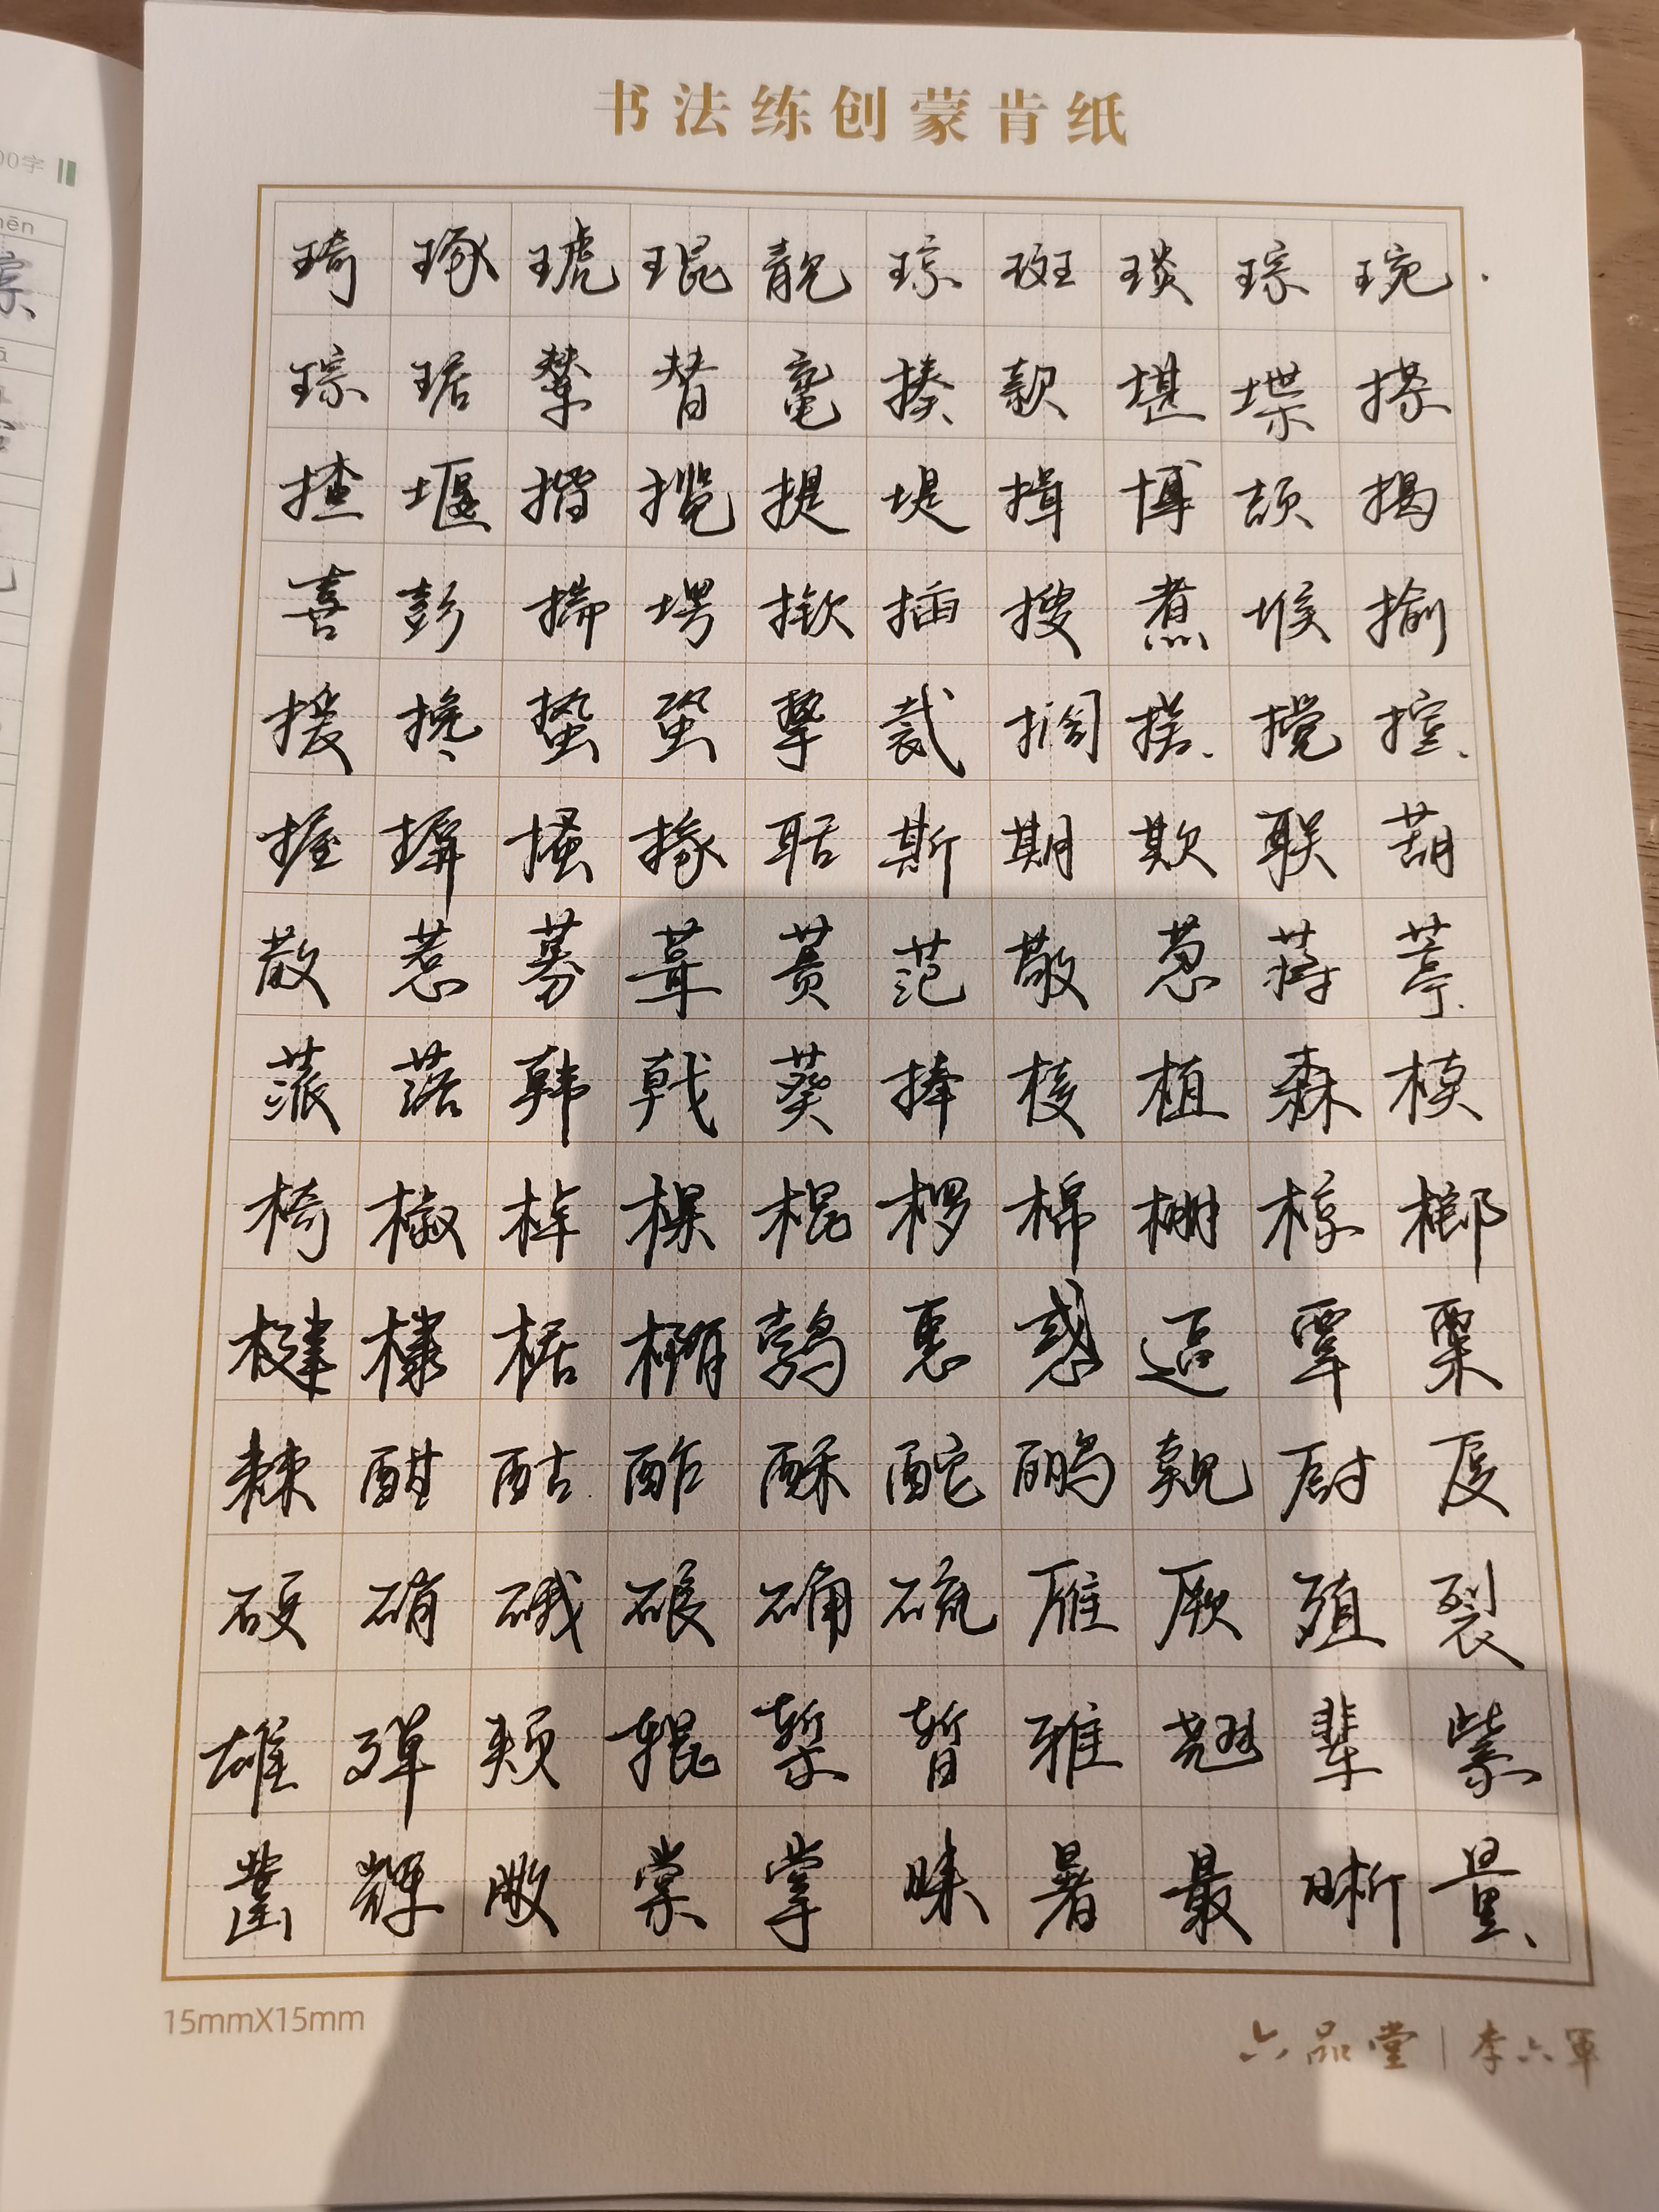 书法练创蒙肯纸
琦琢琥琨靓琼斑琰琮琬
琮琚辇替鼋揍款堪堞搽
揸堰揩揽提堤揖博颉揭
喜彭揣塄揿插搜煮堠揄
援搀蛰蛩挚裁搁搓搅揎
握摒搔掾聒斯期欺联葫
散惹募葺蒉范敬葱蒋葶
蒎落韩戟葵棒棱植森椟
椅椒棹棵棍椤棉棚椋榔
楗棣椐椭鹁惠惑逼覃粟
棘酣酤酢酥酡鹂觌厨厦
硬硝硪硠确硫雁厥殖裂
雄殚颊辊椠暂雅翘辈紫
凿辉敞棠掌睐暑最晰量
15mmX15mm
六品堂|李六軍
00字